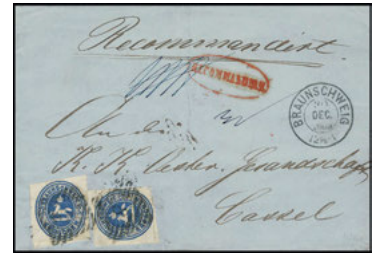 Recommandirt.
RECOMMANDIRT.
BRAUNSCHWEIG
DEC.
An die
K. K. Oester. Gesandschaft
Cassel